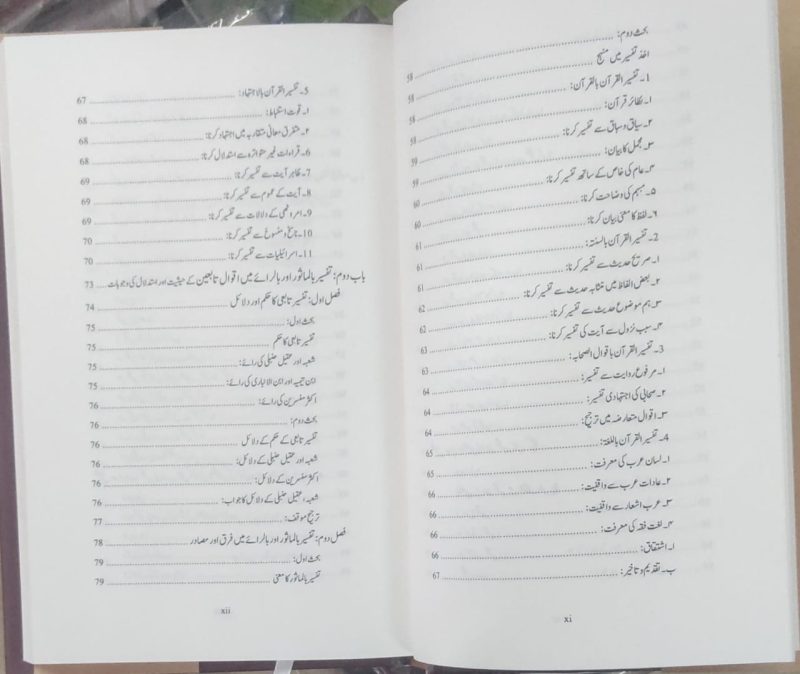 بحث دوم:
اخذ تفسیر میں منہج ........ 58
1۔ تفسیر القرآن بالقرآن: ........ 58
۱۔ نظائر قرآن: ........ 58
۲۔ سیاق و سباق سے تفسیر کرنا: ........ 58
۳۔ مجمل کا بیان: ........ 59
۴۔ عام کی خاص کے ساتھ تفسیر کرنا: ........ 59
۵۔ مبہم کی وضاحت کرنا: ........ 60
۶۔ لفظ کا معنی بیان کرنا: ........ 60
2۔ تفسیر القرآن بالسنۃ: ........ 61
۱۔ صریح حدیث سے تفسیر کرنا: ........ 61
۲۔ بعض الفاظ میں مشابہ حدیث سے تفسیر کرنا: ........ 61
۳۔ ہم موضوع حدیث سے تفسیر کرنا: ........ 62
۴۔ سبب نزول سے آیت کی تفسیر کرنا: ........ 62
3۔ تفسیر القرآن باقوال الصحابہ: ........ 63
۱۔ مرفوع روایت سے تفسیر: ........ 63
۲۔ صحابی کی اجتہادی تفسیر: ........ 64
۳۔ اقوال متعارضہ میں ترجیح: ........ 64
4۔ تفسیر القرآن باللغۃ: ........ 64
۱۔ لسان عرب کی معرفت: ........ 65
۲۔ عادات عرب سے واقفیت: ........ 65
۳۔ عرب اشعار سے واقفیت: ........ 66
۴۔ لغت فقہ کی معرفت: ........ 66
ا۔ اشتقاق: ........ 66
ب۔ تقدیم و تاخیر: ........ 67
xi
5۔ تفسیر القرآن بالاجتہاد: ........ 67
۱۔ قوت استنباط: ........ 68
۲۔ متفرق معانی متقاربہ میں اجتہاد کرنا: ........ 68
6۔ قراءات غیر متواترہ سے استدلال کرنا: ........ 68
7۔ ظاہر آیت سے تفسیر کرنا: ........ 69
8۔ آیت کے عموم سے تفسیر کرنا: ........ 69
9۔ امر و نہی کے دلالات سے تفسیر کرنا: ........ 69
10۔ ناسخ و منسوخ سے تفسیر کرنا: ........ 70
11۔ اسرائیلیات سے تفسیر کرنا: ........ 70
باب دوم: تفسیر بالماثور اور بالرائے میں اقوال تابعین کے حیثیت اور استدلال کی وجوہات ........ 73
فصل اول: تفسیر تابعی کا حکم اور دلائل ........ 74
بحث اول: ........ 75
تفسیر تابعی کا حکم ........ 75
شعبہ اور عقیل حنبلی کی رائے: ........ 75
ابن تیمیہ اور ابن الانباری کی رائے: ........ 75
اکثر مفسرین کی رائے: ........ 76
بحث دوم: ........ 76
تفسیر تابعی کے حکم کے دلائل ........ 76
شعبہ اور عقیل حنبلی کے دلائل: ........ 76
اکثر مفسرین کے دلائل: ........ 76
شعبہ، عقیل حنبلی کے دلائل کا جواب: ........ 76
ترجیح موقف: ........ 77
فصل دوم: تفسیر بالماثور اور بالرائے میں فرق اور مصادر ........ 78
بحث اول: ........ 79
تفسیر بالماثور کا معنی ........ 79
xii